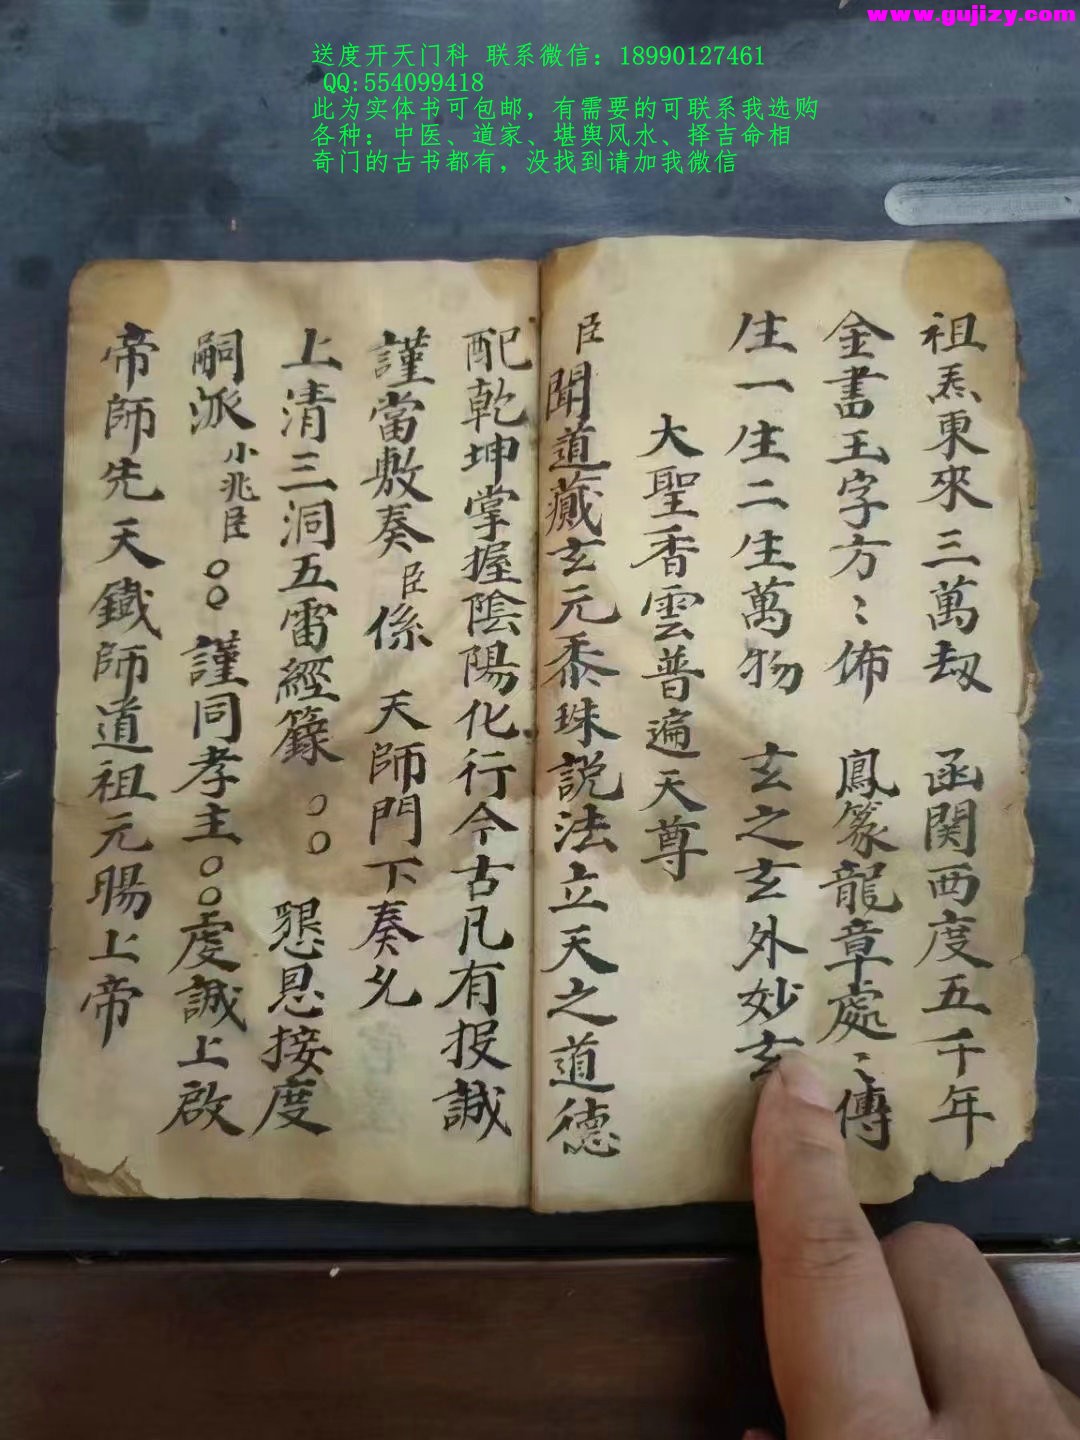 www.gujizy.com
送度开天门科 联系微信：18990127461
QQ:554099418
此为实体书可包邮，有需要的可联系我选购
各种：中医、道家、堪舆风水、择吉命相
奇门的古书都有，没找到请加我微信
祖炁東來三萬刼 函関西度五千年
金書玉字方〻佈 鳳篆龍章處〻傳
生一生二生萬物 玄之玄外妙玄
大聖香雲普遍天尊
臣聞道藏玄元黍珠説法立天之道德
配乾坤掌握陰陽化行今古凡有报誠
謹當敷奏臣係 天師門下奏乆
上清三洞五雷經籙 〇〇 懇恩接度
嗣派小兆臣〇〇謹同孝主〇〇虔誠上啟
帝師先天鐵師道祖元暘上帝